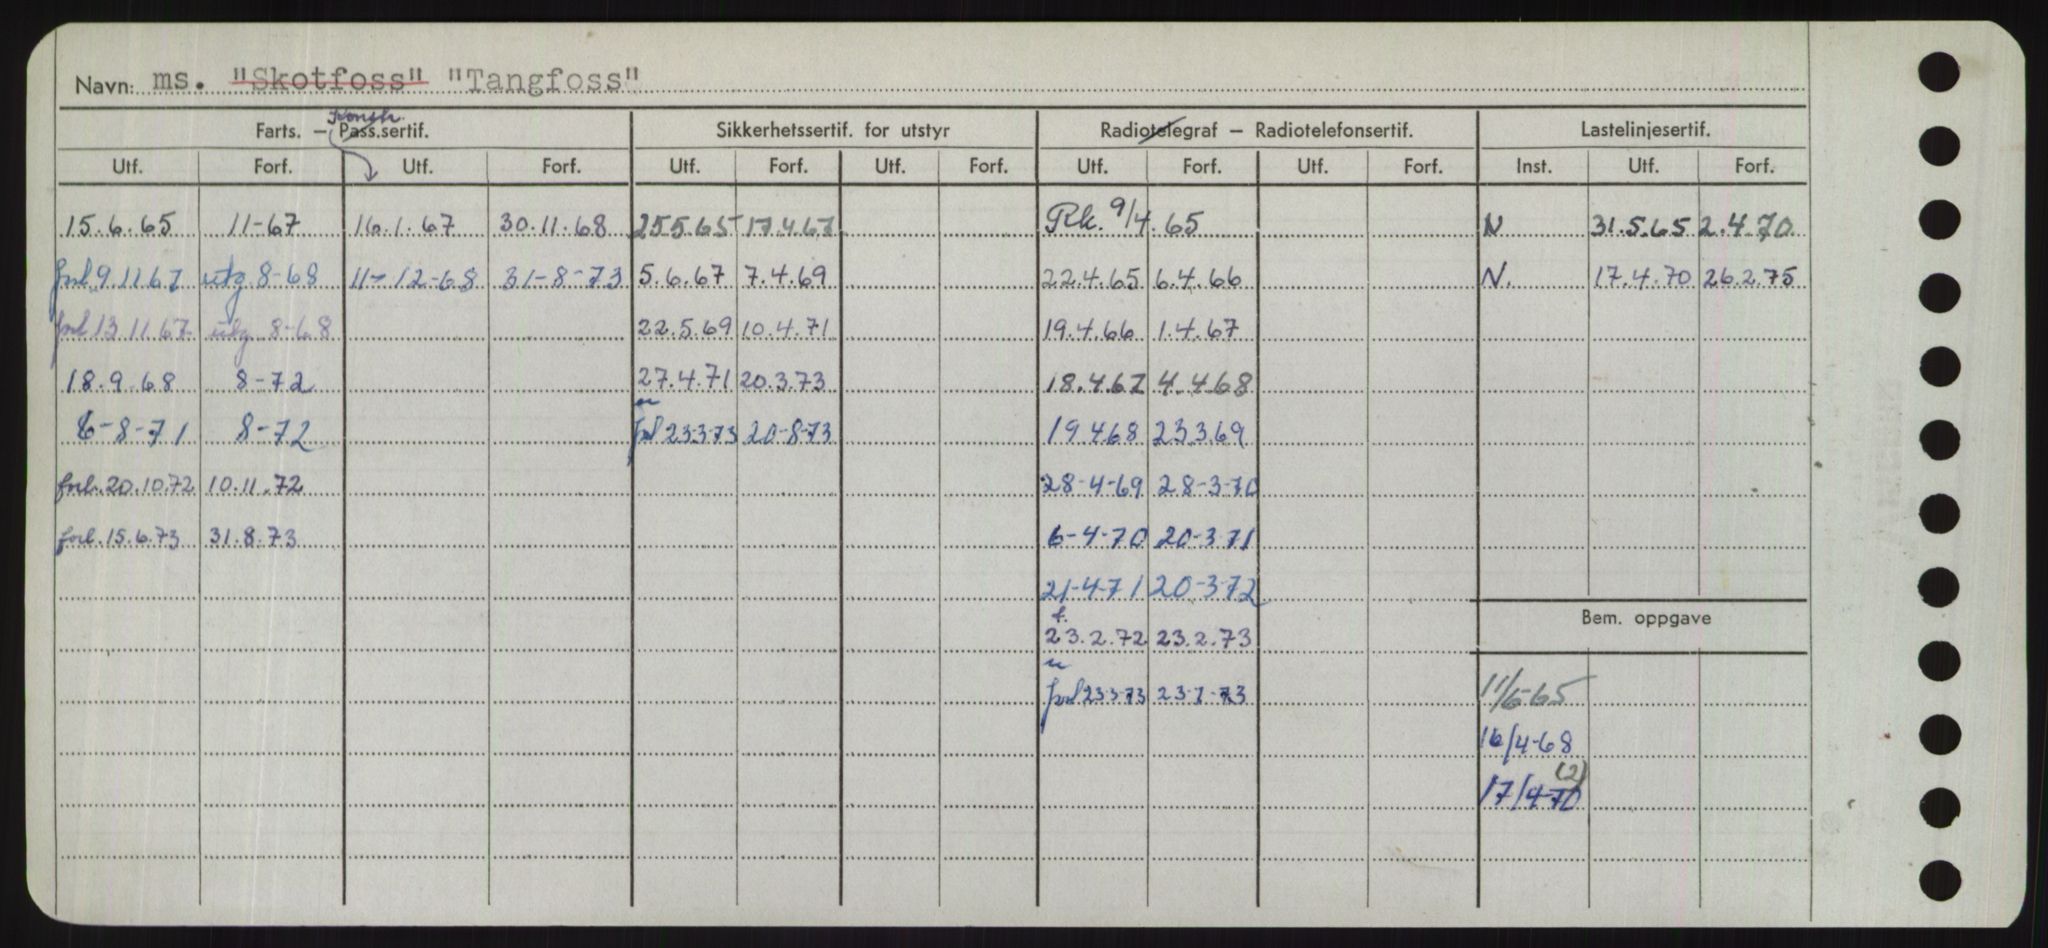 Navn: ms. "Skotfoss" "Tangfoss"
Konstr.
Farts. — Pass.sertif. Sikkerhetssertif. for utstyr Radiotelegraf — Radiotelefonsertif. Lastelinjesertif.
Utf. Forf. Utf. Forf. Utf. Forf. Utf. Forf. Utf. Forf. Utf. Forf. Inst. Utf. Forf.
15.6.65 11-67 16.1.67 30.11.68 25.5.65 17.4.67 Rk. 9/4.65 N 31.5.65 2.4.70
forl 9.11.67 utg 8-68 11-12-68 31-8-73 5.6.67 7.4.69 22.4.65 6.4.66 N. 17.4.70 26.2.75
forl 13.11.67 utg 8-68 22.5.69 10.4.71 19.4.66 1.4.67
18.9.68 8-72 27.4.71 20.3.73 18.4.67 4.4.68
6-8-71 8-72 forl 23.3.73 20-8-73 19.4.68 23.3.69
forl. 20.10.72 10.11.72 28-4-69 28-3-70
forl. 15.6.73 31.8.73 6-4-70 20-3-71
21-4-71 20-3-72
Bem. oppgave
f.
23.2.72 23.2.73
forl 23.3.73
11/6-65
16/4-68
(2)
17/4-70